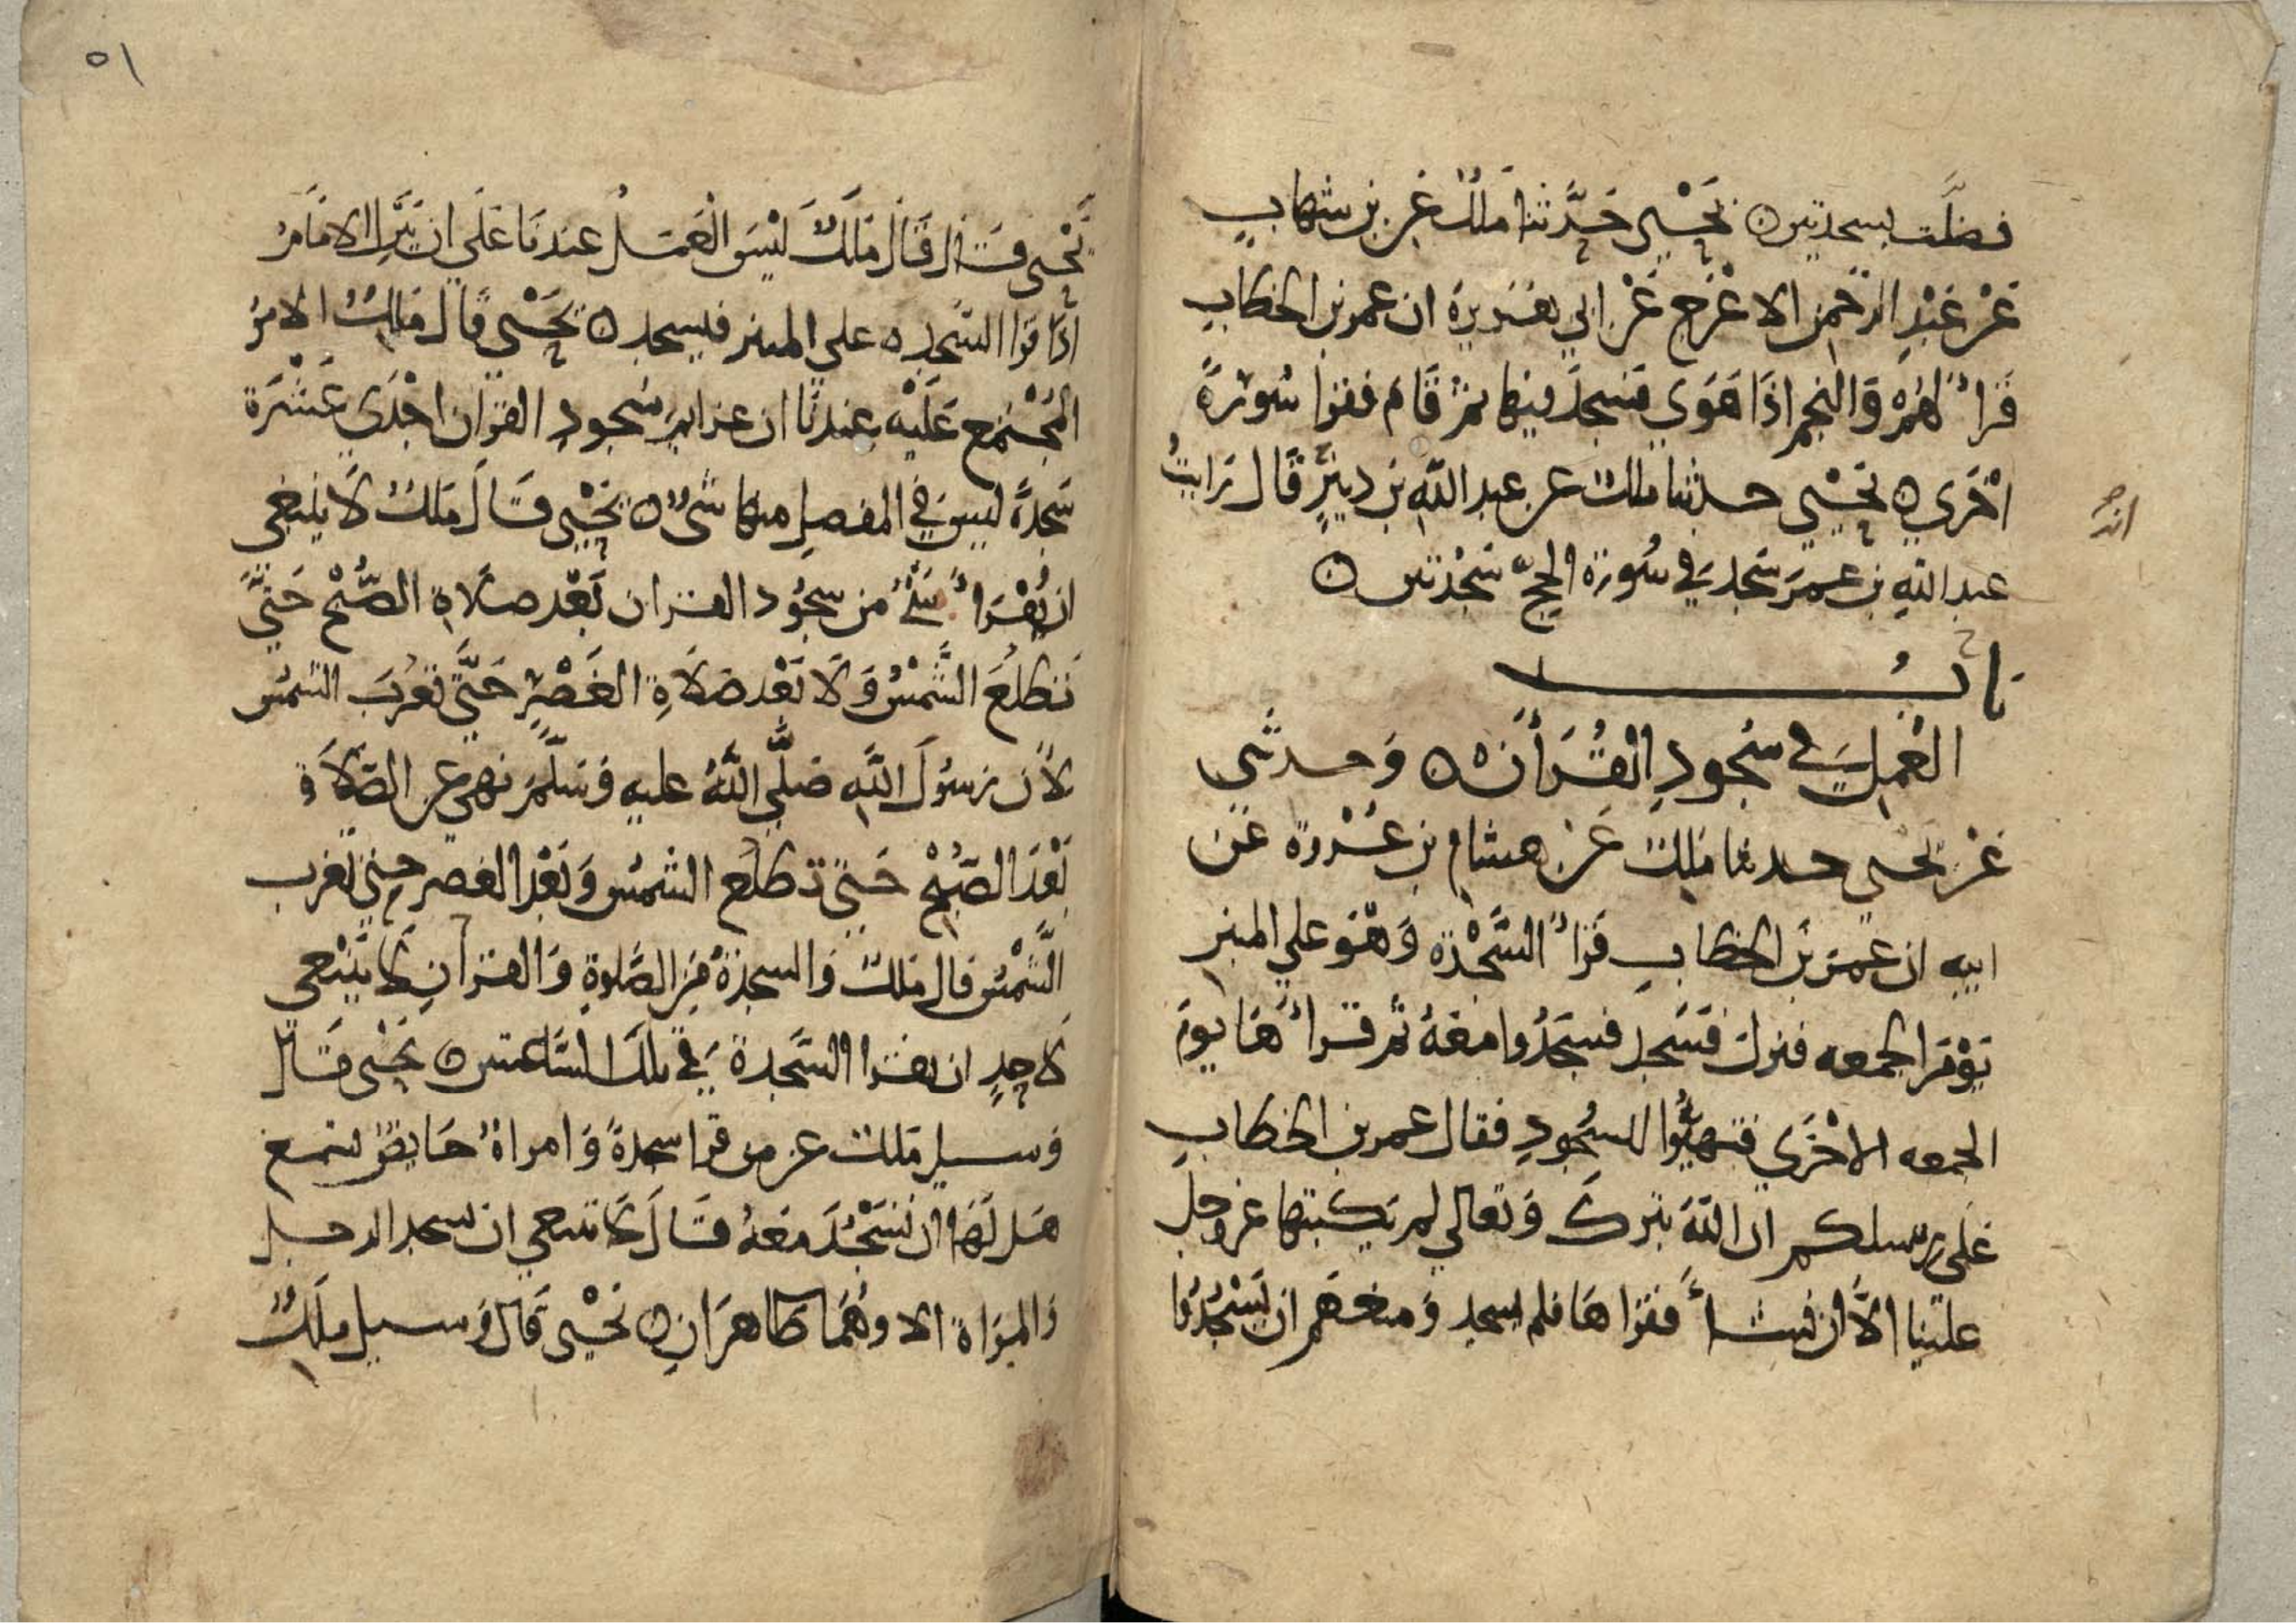 فضلت بسجدتين ه يَحْيى حَدَّثنا مَلكٌ عَن بن شهابٍ
عَنْ عَبْدِ الرَّحمن الاعْرَج عَنْ ابي هُرَيرة ان عمر بن الخطاب
قرأ لهُمْ وَالنجم اذَا هَوَى فسَجدَ فيها ثم قَامَ فقرا سُورَةً
اخْرَى ه يَحْيَى حدثنا ملك عن عبد الله بن دينرٍ قال رَايتُ
انه
عبد اللهِ بن عمرَ سَجدَ في سُورَة الحجّ سَجْدَتين ه
بابُ
العَمل في سُجودِ القُرَأن ه وَحدثني
عَنْ يحيى حدثنا ملك عَن هشام بن عُروة عَن
ابيه ان عُمرَ بن الخطاب قرأ السَّجْدَة وَهْوَ على المنبر
يَوْمَ الجمعه فنزل فَسَجد فسَجَدُوا مَعَهُ ثم قرأهَا يومَ
الجمعه الاخْرَى فتهيَّؤا للسُّجودِ فقال عمر بن الخطاب
عَلى رسلكم ان اللهَ تبرك وَتعالى لم يَكتبْها عز وجل
علينا الاَّ ان نشأ فقراهَا فلم يسجد وَمنعَهم ان يَسْجُدُوا
٥١
يَحْيى قَال قَالَ مَلكٌ لَيْسَ العَمَلُ عندنَا عَلَى ان يَنزِل الامَامُ
اذَا قرا السَّجده على المنبر فيسجد ه يَحْيى قال مَالك الامْرُ
المجْتمع عَلَيْه عندنَا ان عزايم سُجودِ القران احْدَى عَشْرَة
سَجدَةً ليسَ في المفصل منها شىٌ ه يَحْيى قَالَ مَلكٌ لا ينبغي
ان يُقْرَأ شئ من سجُود القران بَعْد صَلاةِ الصُّبْح حَتَّى
تَطلعَ الشَّمْسُ وَلا بَعْد صَلاَةِ العَصْرِ حَتَّى تغرُبَ الشمسُ
لأن رسُولَ اللهِ صَلَّى اللهُ عليه وَسَلَّم نهى عن الصَّلاَة
بَعْدَ الصُّبْح حَتى تطلعَ الشمسُ وَبَعْدَ العَصر حتى تغرب
الشَّمْسُ قال ملك وَالسجدَةُ مِن الصَّلوةِ وَالقرآن لا يَنْبَغي
لاحدٍ ان يقرا السَّجدة في تلكَ السَّاعتين ه يَحْيى قَال
وَسيل مَلك عن من قرا سجدةً وَامراةٌ حَايضٌ تسمع
هَل لَهَا ان تَسْجُدَ مَعَهُ قَالَ لا ينبغي ان يسجد الرجل
وَالمرَاة الا وهُمَا طَاهرَانِ ه يَحْيى قال وَسيل مَلكٌ